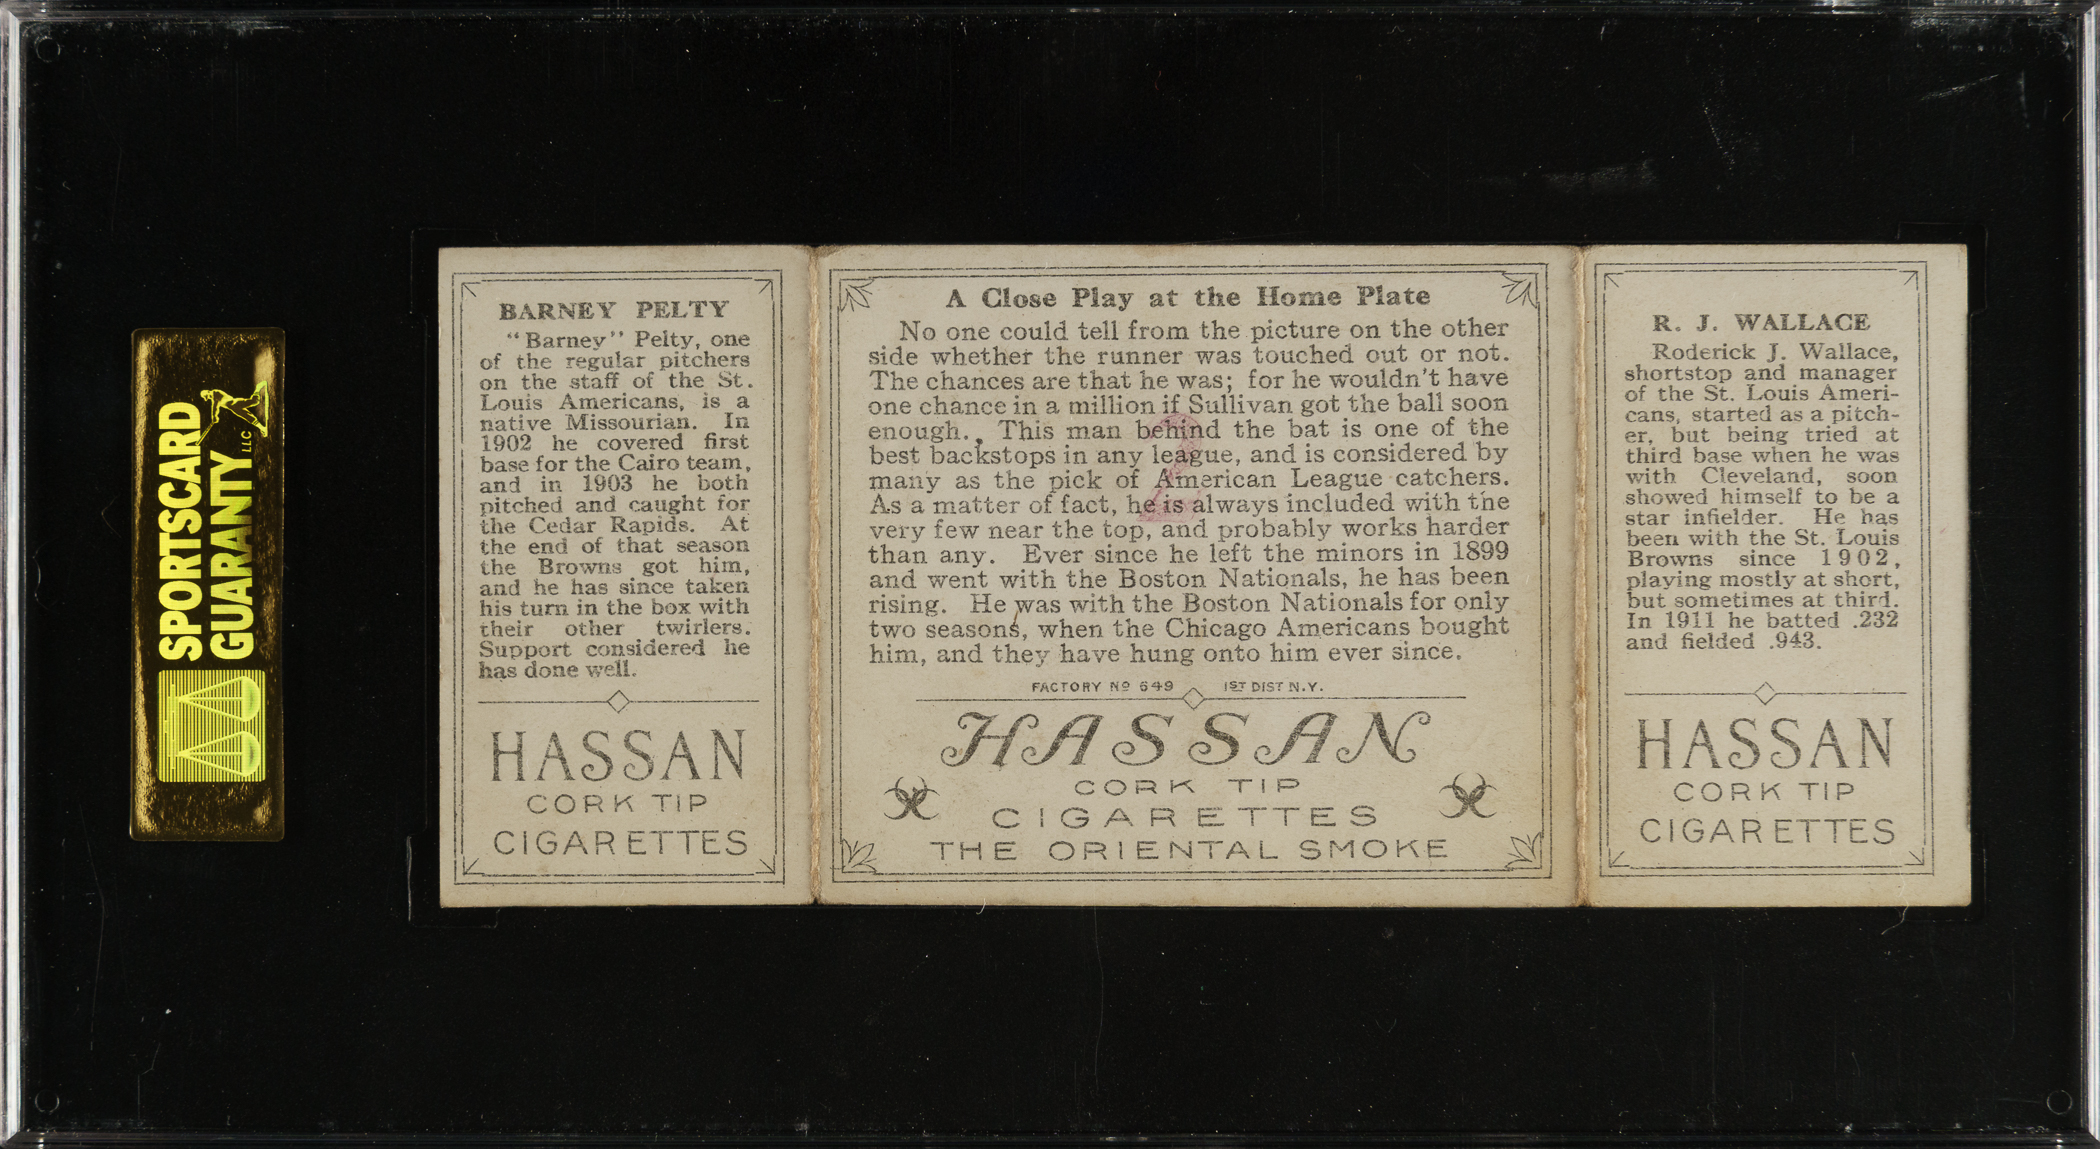 SPORTSCARD
GUARANTY LLC
BARNEY PELTY
"Barney" Pelty, one
of the regular pitchers
on the staff of the St.
Louis Americans, is a
native Missourian. In
1902 he covered first
base for the Cairo team,
and in 1903 he both
pitched and caught for
the Cedar Rapids. At
the end of that season
the Browns got him,
and he has since taken
his turn in the box with
their other twirlers.
Support considered he
has done well.
HASSAN
CORK TIP
CIGARETTES
A Close Play at the Home Plate
No one could tell from the picture on the other
side whether the runner was touched out or not.
The chances are that he was; for he wouldn't have
one chance in a million if Sullivan got the ball soon
enough. This man behind the bat is one of the
best backstops in any league, and is considered by
many as the pick of American League catchers.
As a matter of fact, he is always included with the
very few near the top, and probably works harder
than any. Ever since he left the minors in 1899
and went with the Boston Nationals, he has been
rising. He was with the Boston Nationals for only
two seasons, when the Chicago Americans bought
him, and they have hung onto him ever since.
FACTORY Nº 649 1ST DIST N.Y.
HASSAN
CORK TIP
CIGARETTES
THE ORIENTAL SMOKE
2
R. J. WALLACE
Roderick J. Wallace,
shortstop and manager
of the St. Louis Ameri-
cans, started as a pitch-
er, but being tried at
third base when he was
with Cleveland, soon
showed himself to be a
star infielder. He has
been with the St. Louis
Browns since 1902,
playing mostly at short,
but sometimes at third.
In 1911 he batted .232
and fielded .943.
HASSAN
CORK TIP
CIGARETTES